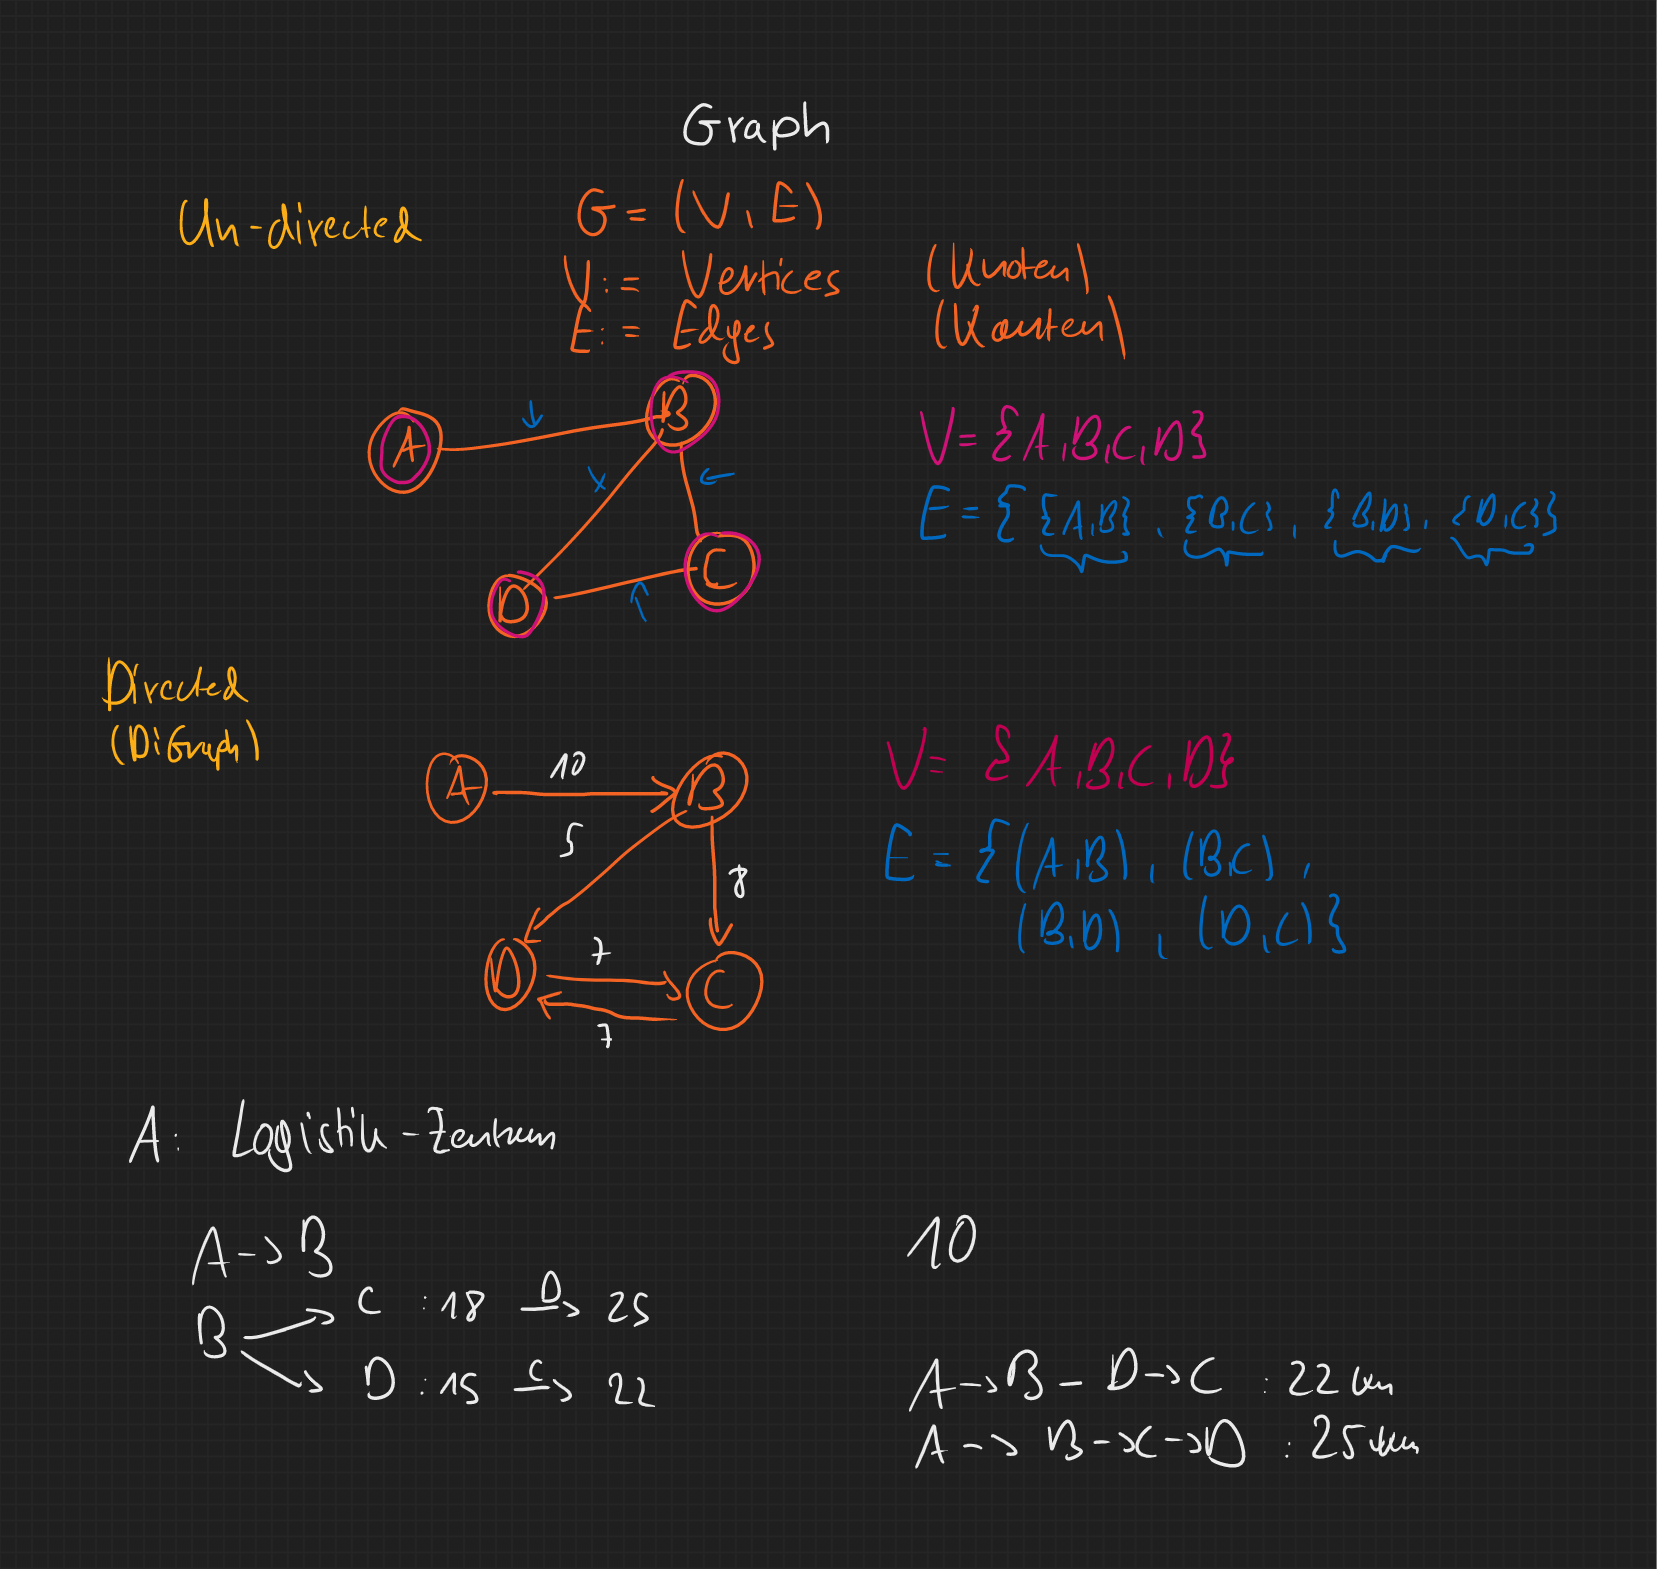 Graph
Un-directed
G = (V, E)
V := Vertices (Knoten)
E := Edges (Kanten)
A
B
C
D
V = {A,B,C,D}
E = { {A,B}, {B,C}, {B,D}, {D,C}}
Directed
(DiGraph)
A 10 B
5
8
D 7 C
7
V = {A,B,C,D}
E = {(A,B), (B,C),
(B,D), (D,C)}
A: Logistik-Zentrum
A -> B 10
B -> C : 18 D-> 25
-> D : 15 C-> 22
A -> B - D -> C : 22 km
A -> B -> C -> D : 25 km